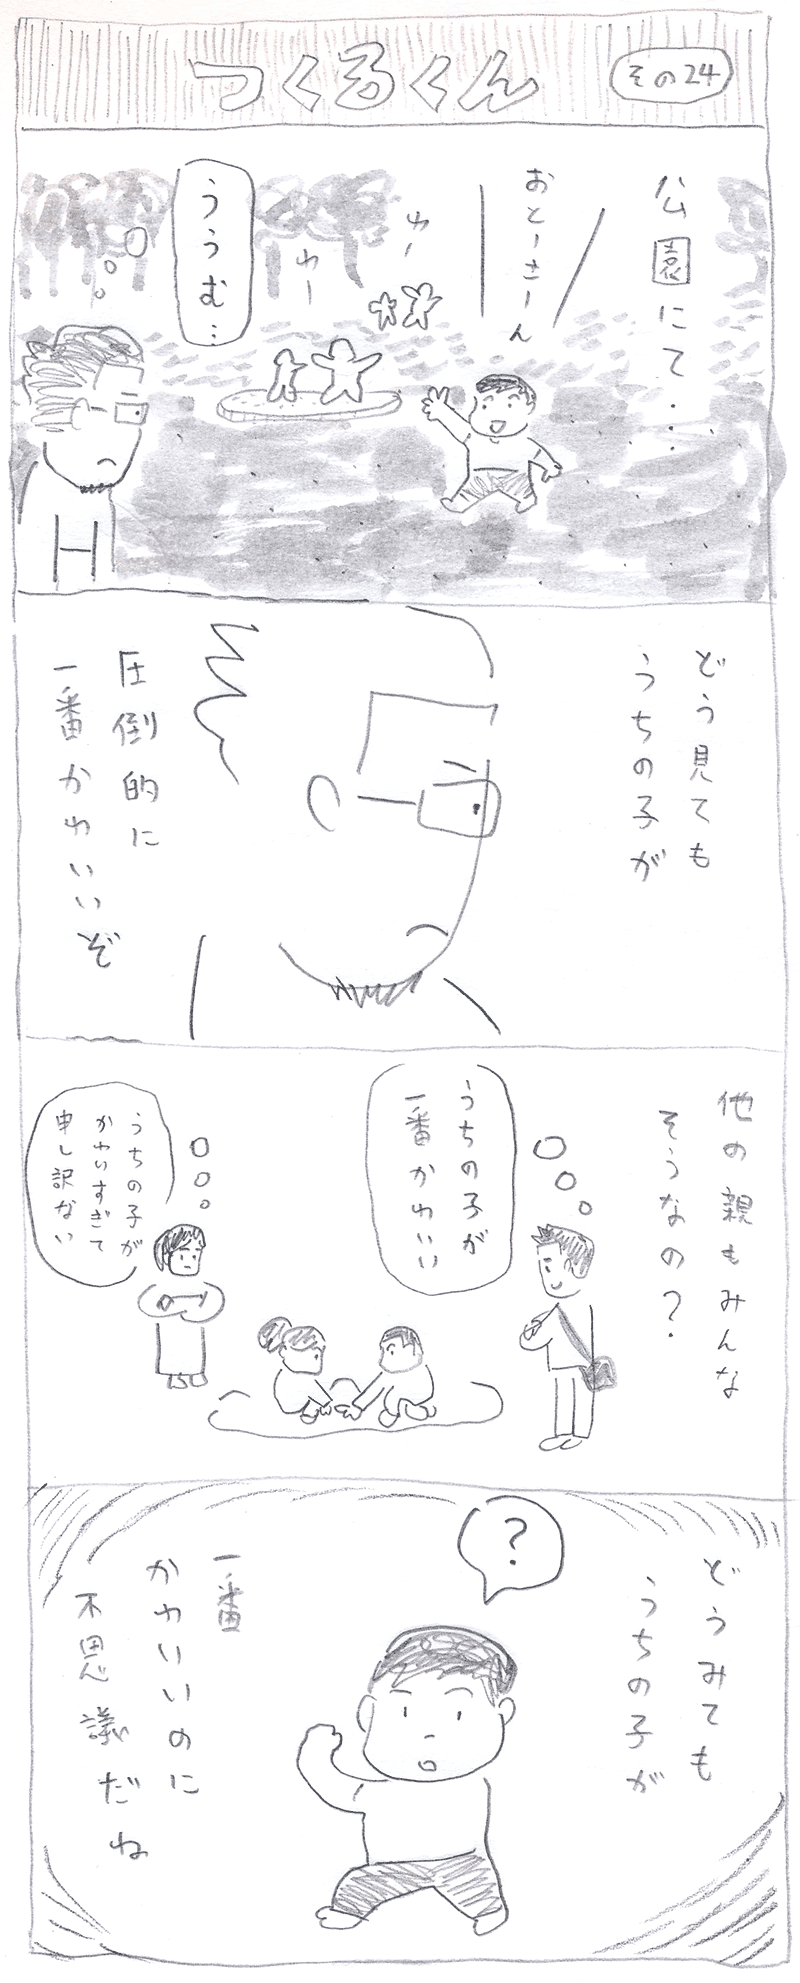 つくるくん
その24
公園にて・・・
おとーさーん
わー
わー
ううむ…
H
どう見ても
うちの子が
圧倒的に
一番かわいいぞ
他の親もみんな
そうなの?
うちの子が
一番かわいい
うちの子が
かわいすぎて
申し訳ない
?
どうみても
うちの子が
一番
かわいいのに
不思議だね